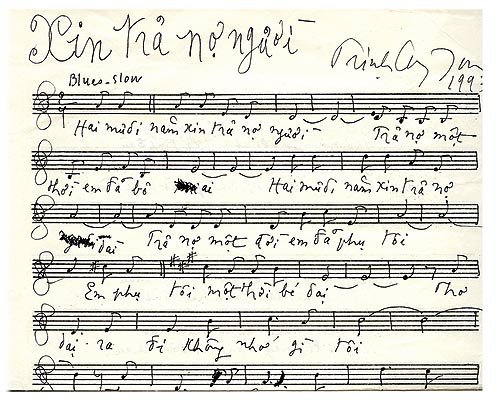 Xin trả nợ người
Trịnh Công Sơn
1993
Blues-slow
Hai mươi năm xin trả nợ người - Trả nợ một
thời em đã bỏ ai Hai mươi năm xin trả nợ
dài Trả nợ một đời em đã phụ tôi
Em phụ tôi một thời bé dại Thơ
dại ra đi không nhớ gì tôi